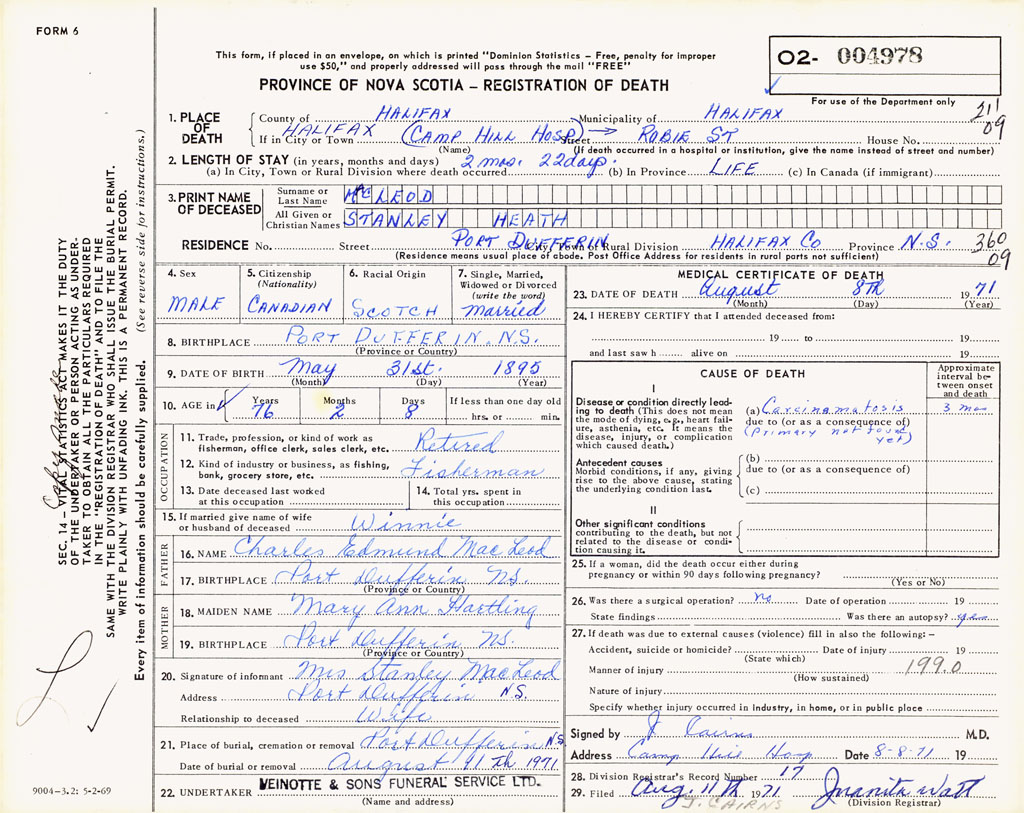 FORM 6
This form, if placed in an envelope, on which is printed "Dominion Statistics – Free, penalty for improper
use $50," and properly addressed will pass through the mail "FREE"
PROVINCE OF NOVA SCOTIA – REGISTRATION OF DEATH
O2- 004978
For use of the Department only
211
09
1. PLACE OF DEATH
County of HALIFAX Municipality of HALIFAX
If in City or Town HALIFAX (CAMP HILL HOSP) → Street ROBIE ST House No.
(Name) (If death occurred in a hospital or institution, give the name instead of street and number)
2. LENGTH OF STAY (in years, months and days) 2 mos. 22 days.
(a) In City, Town or Rural Division where death occurred (b) In Province LIFE (c) In Canada (if immigrant)
3. PRINT NAME OF DECEASED
Surname or Last Name McLEOD
All Given or Christian Names STANLEY HEATH
RESIDENCE No. Street PORT DUFFERIN City, Town or Rural Division HALIFAX CO Province N.S. 360
09
(Residence means usual place of abode. Post Office Address for residents in rural parts not sufficient)
4. Sex MALE
5. Citizenship (Nationality) CANADIAN
6. Racial Origin SCOTCH
7. Single, Married, Widowed or Divorced (write the word) Married
8. BIRTHPLACE PORT DUFFERIN. N.S.
(Province or Country)
9. DATE OF BIRTH May 31st. 1895
(Month) (Day) (Year)
10. AGE in Years 76 Months 2 Days 8 If less than one day old
hrs. or min.
OCCUPATION
11. Trade, profession, or kind of work as fisherman, office clerk, sales clerk, etc. Retired
12. Kind of industry or business, as fishing, bank, grocery store, etc. Fisherman
13. Date deceased last worked at this occupation
14. Total yrs. spent in this occupation
15. If married give name of wife or husband of deceased Winnie
FATHER
16. NAME Charles Edmund MacLeod
17. BIRTHPLACE Port Dufferin NS.
(Province or Country)
MOTHER
18. MAIDEN NAME Mary Ann Hartling
19. BIRTHPLACE Port Dufferin NS.
(Province or Country)
20. Signature of informant Mrs Stanley MacLeod
Address Port Dufferin N.S.
Relationship to deceased Wife
21. Place of burial, cremation or removal Port Dufferin NS
Date of burial or removal August 11th 1971
22. UNDERTAKER VEINOTTE & SONS FUNERAL SERVICE LTD.
(Name and address)
MEDICAL CERTIFICATE OF DEATH
23. DATE OF DEATH August 8th 1971
(Month) (Day) (Year)
24. I HEREBY CERTIFY that I attended deceased from:
19 to 19
and last saw h alive on 19
CAUSE OF DEATH
Approximate interval between onset and death
I
Disease or condition directly leading to death (This does not mean the mode of dying, e.g., heart failure, asthenia, etc. It means the disease, injury, or complication which caused death.)
(a) Carcinomatosis 3 mos
due to (or as a consequence of)
(Primary not found yet)
Antecedent causes
Morbid conditions, if any, giving rise to the above cause, stating the underlying condition last.
(b)
due to (or as a consequence of)
(c)
II
Other significant conditions
contributing to the death, but not related to the disease or condition causing it.
25. If a woman, did the death occur either during
pregnancy or within 90 days following pregnancy?
(Yes or No)
26. Was there a surgical operation? No Date of operation 19
State findings Was there an autopsy?
27. If death was due to external causes (violence) fill in also the following: –
Accident, suicide or homicide? Date of injury 19
(State which)
Manner of injury 199.0
(How sustained)
Nature of injury
Specify whether injury occurred in industry, in home, or in public place
Signed by J Cairns M.D.
Address Camp Hill Hosp Date 8-8-71 19
28. Division Registrar's Record Number 17
29. Filed Aug. 11th 1971 Juanita Watt
J. CAIRNS (Division Registrar)
SEC. 14 – VITAL STATISTICS ACT MAKES IT THE DUTY
OF THE UNDERTAKER OR PERSON ACTING AS UNDER-
TAKER TO OBTAIN ALL THE PARTICULARS REQUIRED
IN THE "REGISTRATION OF DEATH" AND TO FILE THE
SAME WITH THE DIVISION REGISTRAR WHO SHALL ISSUE THE BURIAL PERMIT.
WRITE PLAINLY WITH UNFADING INK. THIS IS A PERMANENT RECORD.
Every item of information should be carefully supplied. (See reverse side for instructions.)
9004-3.2: 5-2-69